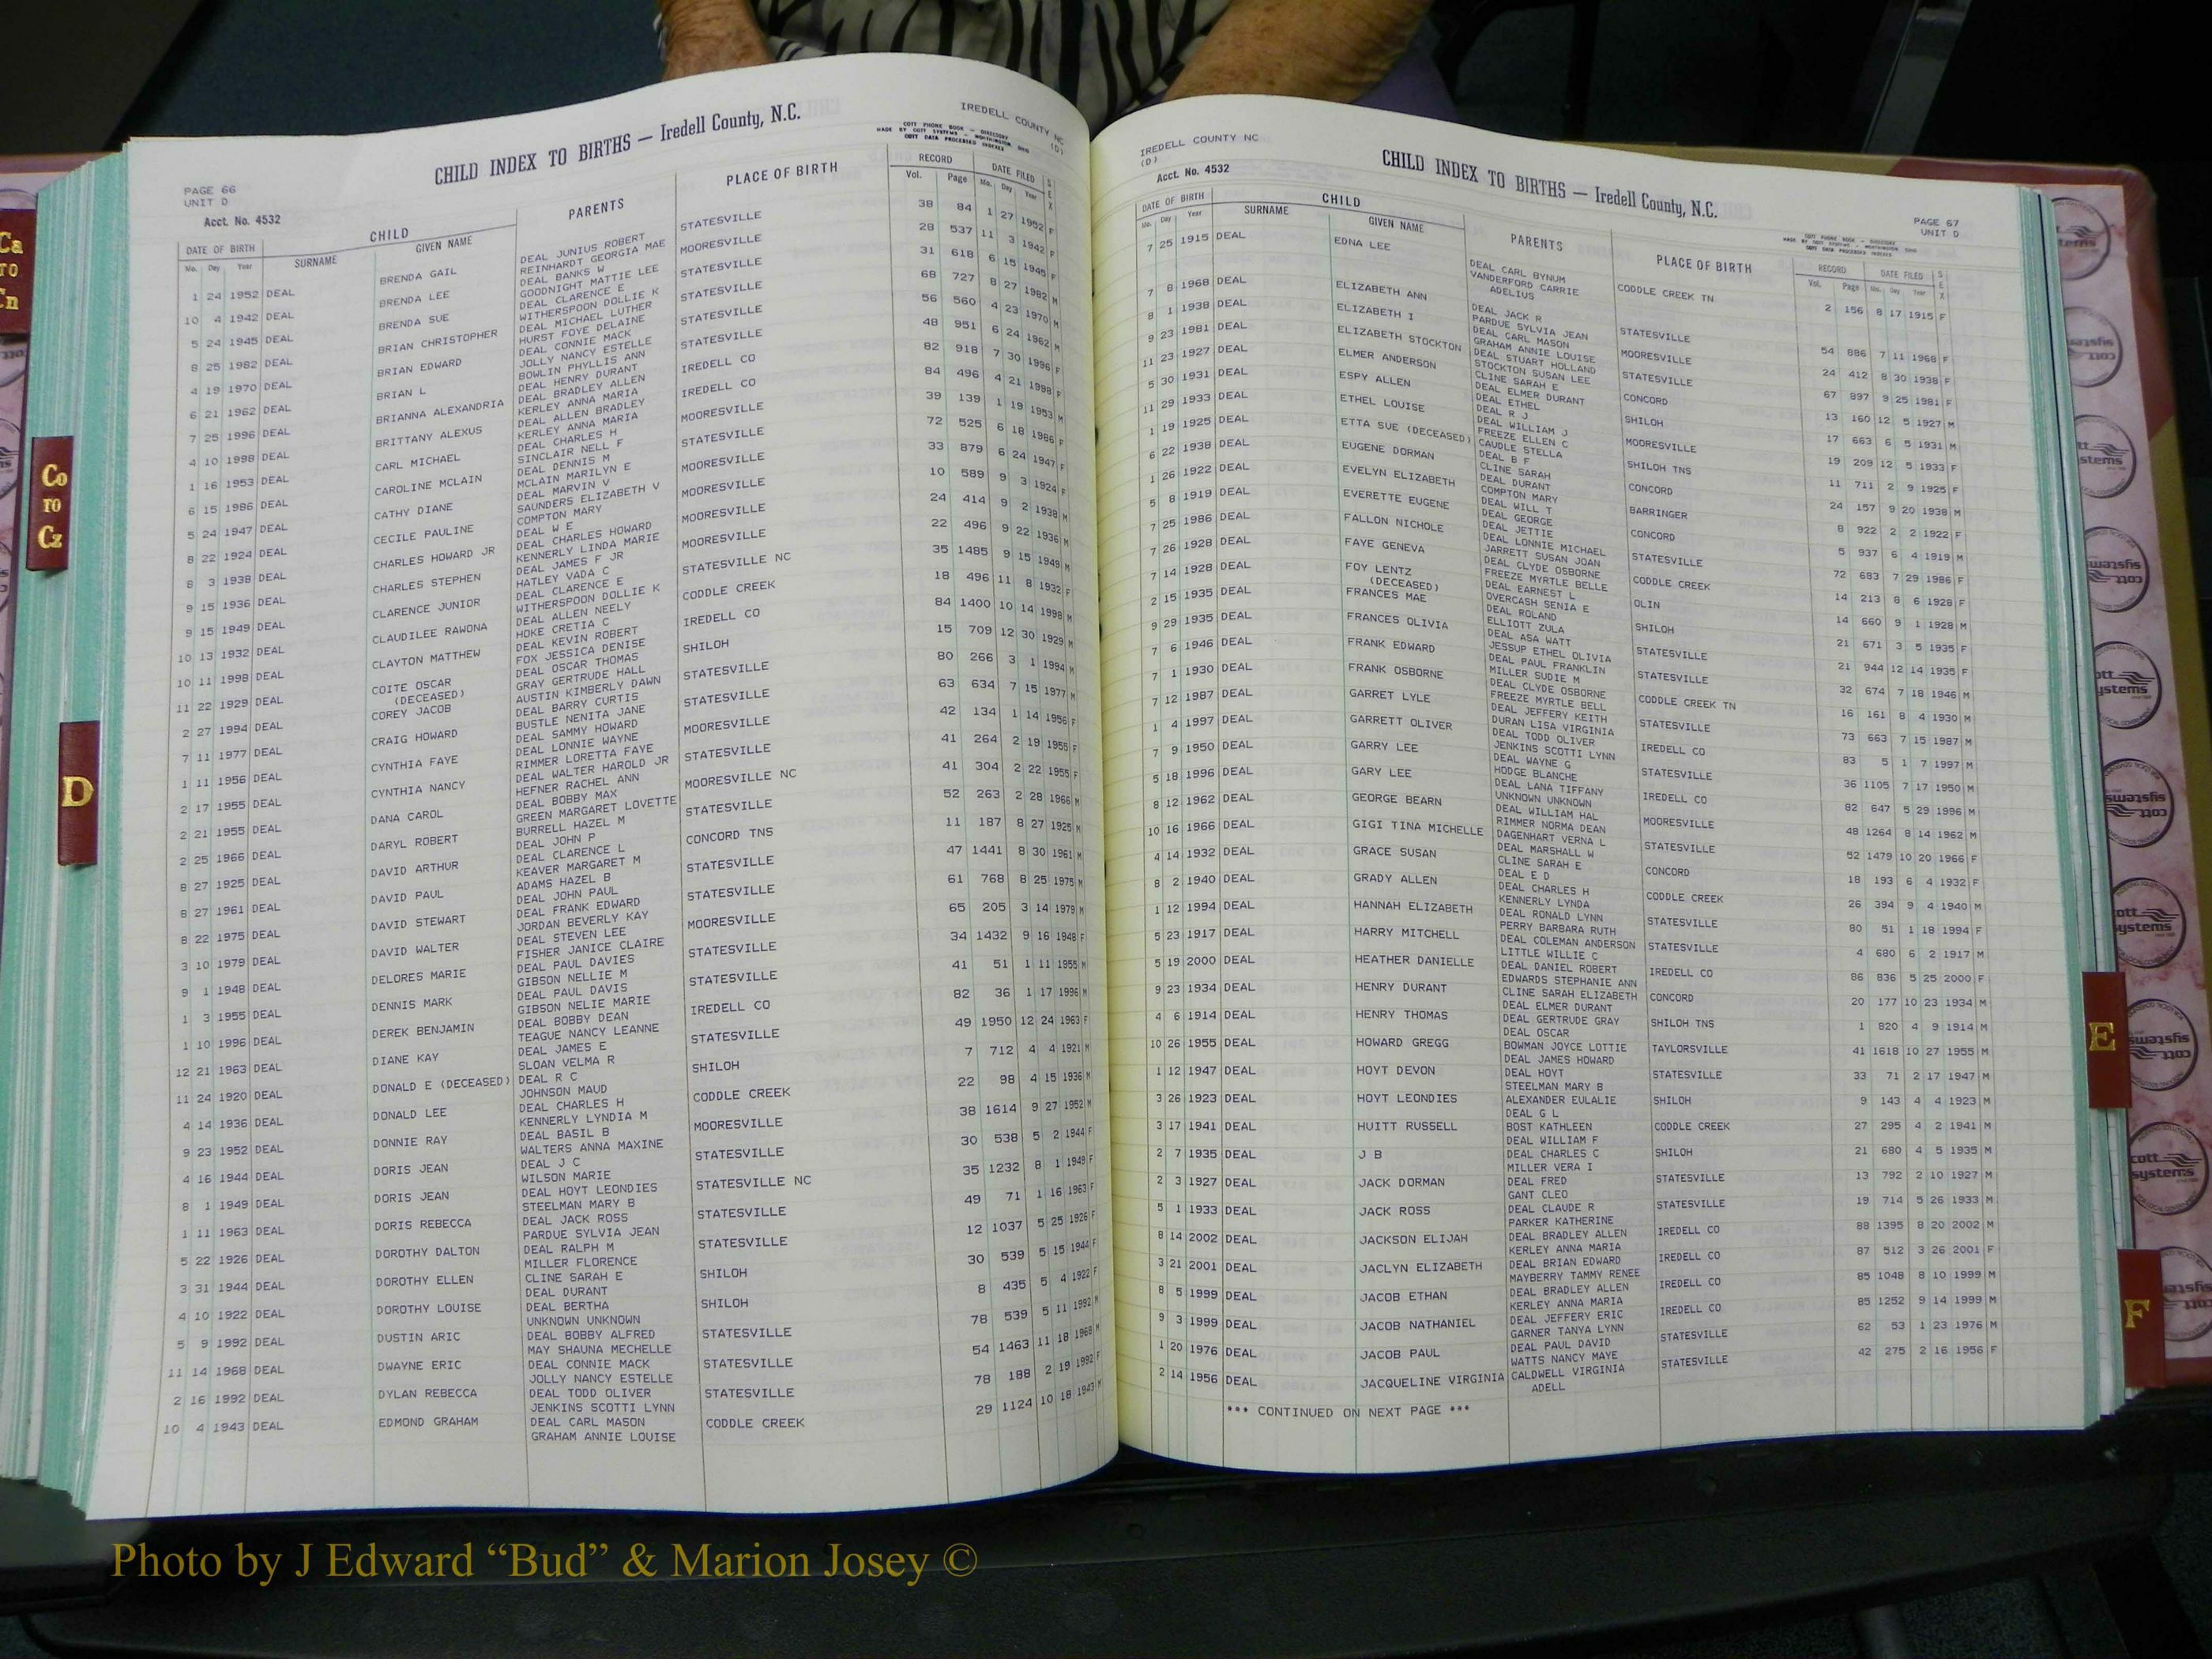 CHILD INDEX TO BIRTHS — Iredell County, N.C.
IREDELL COUNTY NC
(D)
COTT PHONE BOOK — DIRECTORY
MADE BY COTT SYSTEMS — WORTHINGTON, OHIO
COTT DATA PROCESSED INDEXES
PAGE 66
UNIT D
Acct. No. 4532
DATE OF BIRTH CHILD PARENTS PLACE OF BIRTH RECORD DATE FILED SEX
Mo. Day Year SURNAME GIVEN NAME Vol. Page Mo. Day Year
1 24 1952 DEAL BRENDA GAIL DEAL JUNIUS ROBERT STATESVILLE 38 84 1 27 1952 F
REINHARDT GEORGIA MAE
10 4 1942 DEAL BRENDA LEE DEAL BANKS W MOORESVILLE 28 537 11 3 1942 F
GOODNIGHT MATTIE LEE
5 24 1945 DEAL BRENDA SUE DEAL CLARENCE E STATESVILLE 31 618 6 15 1945 F
WITHERSPOON DOLLIE K
8 25 1982 DEAL BRIAN CHRISTOPHER DEAL MICHAEL LUTHER STATESVILLE 68 727 8 27 1982 M
HURST FOYE DELAINE
4 19 1970 DEAL BRIAN EDWARD DEAL CONNIE MACK STATESVILLE 56 560 4 23 1970 M
JOLLY NANCY ESTELLE
6 21 1962 DEAL BRIAN L BOWLIN PHYLLIS ANN STATESVILLE 48 951 6 24 1962 M
DEAL HENRY DURANT
7 25 1996 DEAL BRIANNA ALEXANDRIA DEAL BRADLEY ALLEN IREDELL CO 82 918 7 30 1996 F
KERLEY ANNA MARIA
4 10 1998 DEAL BRITTANY ALEXUS DEAL ALLEN BRADLEY IREDELL CO 84 496 4 21 1998 F
KERLEY ANNA MARIA
1 16 1953 DEAL CARL MICHAEL DEAL CHARLES H MOORESVILLE 39 139 1 19 1953 M
SINCLAIR NELL F
6 15 1986 DEAL CAROLINE MCLAIN DEAL DENNIS M STATESVILLE 72 525 6 18 1986 F
MCLAIN MARILYN E
5 24 1947 DEAL CATHY DIANE DEAL MARVIN V MOORESVILLE 33 879 6 24 1947 F
SAUNDERS ELIZABETH V
8 22 1924 DEAL CECILE PAULINE COMPTON MARY MOORESVILLE 10 589 9 3 1924 F
DEAL W E
8 3 1938 DEAL CHARLES HOWARD JR DEAL CHARLES HOWARD MOORESVILLE 24 414 9 2 1938 M
KENNERLY LINDA MARIE
9 15 1936 DEAL CHARLES STEPHEN DEAL JAMES F JR MOORESVILLE 22 496 9 22 1936 M
HATLEY VADA C
9 15 1949 DEAL CLARENCE JUNIOR DEAL CLARENCE E STATESVILLE NC 35 1485 9 15 1949 M
WITHERSPOON DOLLIE K
10 13 1932 DEAL CLAUDILEE RAWONA DEAL ALLEN NEELY CODDLE CREEK 18 496 11 8 1932 F
HOKE CRETIA C
10 11 1998 DEAL CLAYTON MATTHEW DEAL KEVIN ROBERT IREDELL CO 84 1400 10 14 1998 M
FOX JESSICA DENISE
11 22 1929 DEAL COITE OSCAR DEAL OSCAR THOMAS SHILOH 15 709 12 30 1929 M
(DECEASED) GRAY GERTRUDE HALL
2 27 1994 DEAL COREY JACOB AUSTIN KIMBERLY DAWN STATESVILLE 80 266 3 1 1994 M
DEAL BARRY CURTIS
7 11 1977 DEAL CRAIG HOWARD BUSTLE NENITA JANE STATESVILLE 63 634 7 15 1977 M
DEAL SAMMY HOWARD
1 11 1956 DEAL CYNTHIA FAYE DEAL LONNIE WAYNE MOORESVILLE 42 134 1 14 1956 F
RIMMER LORETTA FAYE
2 17 1955 DEAL CYNTHIA NANCY DEAL WALTER HAROLD JR STATESVILLE 41 264 2 19 1955 F
HEFNER RACHEL ANN
2 21 1955 DEAL DANA CAROL DEAL BOBBY MAX MOORESVILLE NC 41 304 2 22 1955 F
GREEN MARGARET LOVETTE
2 25 1966 DEAL DARYL ROBERT BURRELL HAZEL M STATESVILLE 52 263 2 28 1966 M
DEAL JOHN P
8 27 1925 DEAL DAVID ARTHUR DEAL CLARENCE L CONCORD TNS 11 187 8 27 1925 M
KEAVER MARGARET M
8 27 1961 DEAL DAVID PAUL ADAMS HAZEL B STATESVILLE 47 1441 8 30 1961 M
DEAL JOHN PAUL
8 22 1975 DEAL DAVID STEWART DEAL FRANK EDWARD STATESVILLE 61 768 8 25 1975 M
JORDAN BEVERLY KAY
3 10 1979 DEAL DAVID WALTER DEAL STEVEN LEE MOORESVILLE 65 205 3 14 1979 M
FISHER JANICE CLAIRE
9 1 1948 DEAL DELORES MARIE DEAL PAUL DAVIES STATESVILLE 34 1432 9 16 1948 F
GIBSON NELLIE M
1 3 1955 DEAL DENNIS MARK DEAL PAUL DAVIS STATESVILLE 41 51 1 11 1955 M
GIBSON NELIE MARIE
1 10 1996 DEAL DEREK BENJAMIN DEAL BOBBY DEAN IREDELL CO 82 36 1 17 1996 M
TEAGUE NANCY LEANNE
12 21 1963 DEAL DIANE KAY DEAL JAMES E STATESVILLE 49 1950 12 24 1963 F
SLOAN VELMA R
11 24 1920 DEAL DONALD E (DECEASED) DEAL R C SHILOH 7 712 4 4 1921 M
JOHNSON MAUD
4 14 1936 DEAL DONALD LEE DEAL CHARLES H CODDLE CREEK 22 98 4 15 1936 M
KENNERLY LYNDIA M
9 23 1952 DEAL DONNIE RAY DEAL BASIL B MOORESVILLE 38 1614 9 27 1952 M
WALTERS ANNA MAXINE
4 16 1944 DEAL DORIS JEAN DEAL J C STATESVILLE 30 538 5 2 1944 F
WILSON MARIE
8 1 1949 DEAL DORIS JEAN DEAL HOYT LEONDIES STATESVILLE NC 35 1232 8 1 1949 F
STEELMAN MARY B
1 11 1963 DEAL DORIS REBECCA DEAL JACK ROSS STATESVILLE 49 71 1 16 1963 F
PARDUE SYLVIA JEAN
5 22 1926 DEAL DOROTHY DALTON DEAL RALPH M STATESVILLE 12 1037 5 25 1926 F
MILLER FLORENCE
3 31 1944 DEAL DOROTHY ELLEN CLINE SARAH E SHILOH 30 539 5 15 1944 F
DEAL DURANT
4 10 1922 DEAL DOROTHY LOUISE DEAL BERTHA SHILOH 8 435 5 4 1922 F
UNKNOWN UNKNOWN
5 9 1992 DEAL DUSTIN ARIC DEAL BOBBY ALFRED STATESVILLE 78 539 5 11 1992 M
MAY SHAUNA MECHELLE
11 14 1968 DEAL DWAYNE ERIC DEAL CONNIE MACK STATESVILLE 54 1463 11 18 1968 M
JOLLY NANCY ESTELLE
2 16 1992 DEAL DYLAN REBECCA DEAL TODD OLIVER STATESVILLE 78 188 2 19 1992 F
JENKINS SCOTTI LYNN
10 4 1943 DEAL EDMOND GRAHAM DEAL CARL MASON CODDLE CREEK 29 1124 10 18 1943 M
GRAHAM ANNIE LOUISE
IREDELL COUNTY NC
(D)
CHILD INDEX TO BIRTHS — Iredell County, N.C.
Acct. No. 4532
PAGE 67
UNIT D
COTT PHONE BOOK — DIRECTORY
MADE BY COTT SYSTEMS — WORTHINGTON, OHIO
COTT DATA PROCESSED INDEXES
DATE OF BIRTH CHILD PARENTS PLACE OF BIRTH RECORD DATE FILED SEX
Mo. Day Year SURNAME GIVEN NAME Vol. Page Mo. Day Year
7 25 1915 DEAL EDNA LEE DEAL CARL BYNUM CODDLE CREEK TN 2 156 8 17 1915 F
VANDERFORD CARRIE
ADELIUS
7 8 1968 DEAL ELIZABETH ANN DEAL JACK R STATESVILLE 54 886 7 11 1968 F
PARDUE SYLVIA JEAN
8 1 1938 DEAL ELIZABETH I DEAL CARL MASON MOORESVILLE 24 412 8 30 1938 F
GRAHAM ANNIE LOUISE
9 23 1981 DEAL ELIZABETH STOCKTON DEAL STUART HOLLAND STATESVILLE 67 897 9 25 1981 F
STOCKTON SUSAN LEE
11 23 1927 DEAL ELMER ANDERSON CLINE SARAH E CONCORD 13 160 12 5 1927 M
DEAL ELMER DURANT
5 30 1931 DEAL ESPY ALLEN DEAL ETHEL SHILOH 17 663 6 5 1931 M
DEAL R J
11 29 1933 DEAL ETHEL LOUISE DEAL WILLIAM J MOORESVILLE 19 209 12 5 1933 F
FREEZE ELLEN C
1 19 1925 DEAL ETTA SUE (DECEASED) CAUDLE STELLA SHILOH TNS 11 711 2 9 1925 F
DEAL B F
6 22 1938 DEAL EUGENE DORMAN CLINE SARAH CONCORD 24 157 9 20 1938 M
DEAL DURANT
1 26 1922 DEAL EVELYN ELIZABETH COMPTON MARY BARRINGER 8 922 2 2 1922 F
DEAL WILL T
5 8 1919 DEAL EVERETTE EUGENE DEAL GEORGE CONCORD 5 937 6 4 1919 M
DEAL JETTIE
7 25 1986 DEAL FALLON NICHOLE DEAL LONNIE MICHAEL STATESVILLE 72 683 7 29 1986 F
JARRETT SUSAN JOAN
7 26 1928 DEAL FAYE GENEVA DEAL CLYDE OSBORNE CODDLE CREEK 14 213 8 6 1928 F
FREEZE MYRTLE BELLE
7 14 1928 DEAL FOY LENTZ DEAL EARNEST L OLIN 14 660 9 1 1928 M
(DECEASED) OVERCASH SENIA E
2 15 1935 DEAL FRANCES MAE DEAL ROLAND SHILOH 21 671 3 5 1935 F
ELLIOTT ZULA
9 29 1935 DEAL FRANCES OLIVIA DEAL ASA WATT STATESVILLE 21 944 12 14 1935 F
JESSUP ETHEL OLIVIA
7 6 1946 DEAL FRANK EDWARD DEAL PAUL FRANKLIN STATESVILLE 32 674 7 18 1946 M
MILLER SUDIE M
7 1 1930 DEAL FRANK OSBORNE DEAL CLYDE OSBORNE CODDLE CREEK TN 16 161 8 4 1930 M
FREEZE MYRTLE BELL
7 12 1987 DEAL GARRET LYLE DEAL JEFFERY KEITH STATESVILLE 73 663 7 15 1987 M
DURAN LISA VIRGINIA
1 4 1997 DEAL GARRETT OLIVER DEAL TODD OLIVER IREDELL CO 83 5 1 7 1997 M
JENKINS SCOTTI LYNN
7 9 1950 DEAL GARRY LEE DEAL WAYNE G STATESVILLE 36 1105 7 17 1950 M
HODGE BLANCHE
5 18 1996 DEAL GARY LEE DEAL LANA TIFFANY IREDELL CO 82 647 5 29 1996 M
UNKNOWN UNKNOWN
8 12 1962 DEAL GEORGE BEARN DEAL WILLIAM HAL MOORESVILLE 48 1264 8 14 1962 M
RIMMER NORMA DEAN
10 16 1966 DEAL GIGI TINA MICHELLE DAGENHART VERNA L STATESVILLE 52 1479 10 20 1966 F
DEAL MARSHALL W
4 14 1932 DEAL GRACE SUSAN CLINE SARAH E CONCORD 18 193 6 4 1932 F
DEAL E D
8 2 1940 DEAL GRADY ALLEN DEAL CHARLES H CODDLE CREEK 26 394 9 4 1940 M
KENNERLY LYNDA
1 12 1994 DEAL HANNAH ELIZABETH DEAL RONALD LYNN STATESVILLE 80 51 1 18 1994 F
PERRY BARBARA RUTH
5 23 1917 DEAL HARRY MITCHELL DEAL COLEMAN ANDERSON STATESVILLE 4 680 6 2 1917 M
LITTLE WILLIE C
5 19 2000 DEAL HEATHER DANIELLE DEAL DANIEL ROBERT IREDELL CO 86 836 5 25 2000 F
EDWARDS STEPHANIE ANN
9 23 1934 DEAL HENRY DURANT CLINE SARAH ELIZABETH CONCORD 20 177 10 23 1934 M
DEAL ELMER DURANT
4 6 1914 DEAL HENRY THOMAS DEAL GERTRUDE GRAY SHILOH TNS 1 820 4 9 1914 M
DEAL OSCAR
10 26 1955 DEAL HOWARD GREGG BOWMAN JOYCE LOTTIE TAYLORSVILLE 41 1618 10 27 1955 M
DEAL JAMES HOWARD
1 12 1947 DEAL HOYT DEVON DEAL HOYT STATESVILLE 33 71 2 17 1947 M
STEELMAN MARY B
3 26 1923 DEAL HOYT LEONDIES ALEXANDER EULALIE SHILOH 9 143 4 4 1923 M
DEAL G L
3 17 1941 DEAL HUITT RUSSELL BOST KATHLEEN CODDLE CREEK 27 295 4 2 1941 M
DEAL WILLIAM F
2 7 1935 DEAL J B DEAL CHARLES C SHILOH 21 680 4 5 1935 M
MILLER VERA I
2 3 1927 DEAL JACK DORMAN DEAL FRED STATESVILLE 13 792 2 10 1927 M
GANT CLEO
5 1 1933 DEAL JACK ROSS DEAL CLAUDE R STATESVILLE 19 714 5 26 1933 M
PARKER KATHERINE
8 14 2002 DEAL JACKSON ELIJAH DEAL BRADLEY ALLEN IREDELL CO 88 1395 8 20 2002 M
KERLEY ANNA MARIA
3 21 2001 DEAL JACLYN ELIZABETH DEAL BRIAN EDWARD IREDELL CO 87 512 3 26 2001 F
MAYBERRY TAMMY RENEE
8 5 1999 DEAL JACOB ETHAN DEAL BRADLEY ALLEN IREDELL CO 85 1048 8 10 1999 M
KERLEY ANNA MARIA
9 3 1999 DEAL JACOB NATHANIEL DEAL JEFFERY ERIC IREDELL CO 85 1252 9 14 1999 M
GARNER TANYA LYNN
1 20 1976 DEAL JACOB PAUL DEAL PAUL DAVID STATESVILLE 62 53 1 23 1976 M
WATTS NANCY MAYE
2 14 1956 DEAL JACQUELINE VIRGINIA CALDWELL VIRGINIA STATESVILLE 42 275 2 16 1956 F
ADELL
*** CONTINUED ON NEXT PAGE ***
Ca
TO
Cn
Co
TO
Cz
D
E
F
cott
systems
Photo by J Edward “Bud” & Marion Josey ©